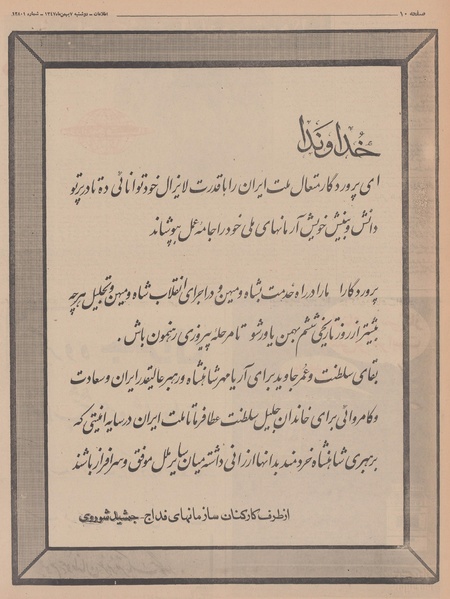 صفحه ۱۰
اطلاعات ـ دوشنبه ۷ بهمن‌ماه ۱۳۴۷ ـ شماره ۱۲۸۰۱
خداوندا
ای پروردگار متعال ملت ایران را با قدرت لایزال خود توانائی ده تا در پرتو
دانش و بینش خویش آرمانهای ملی خود را جامهٔ عمل بپوشاند
پروردگارا ما را در راه خدمت بشاه و میهن و در اجرای انقلاب شاه و میهن و تجلیل هر چه
بیشتر از روز تاریخی ششم بهمن یاور شو تا مرحلهٔ پیروزی رهنمون باش .
بقای سلطنت و عمر جاوید برای آریامهر شاهنشاه و رهبر عالیقدر ایران و سعادت
و کامروائی برای خاندان جلیل سلطنت عطا فرما تا ملت ایران در سایه امنیتی که
برهبری شاهنشاه خردمند بدانها ارزانی داشته میان سایر ملل موفق و سرافراز باشند
از طرف کارکنان سازمانهای فداج ـ جمشید شوروی